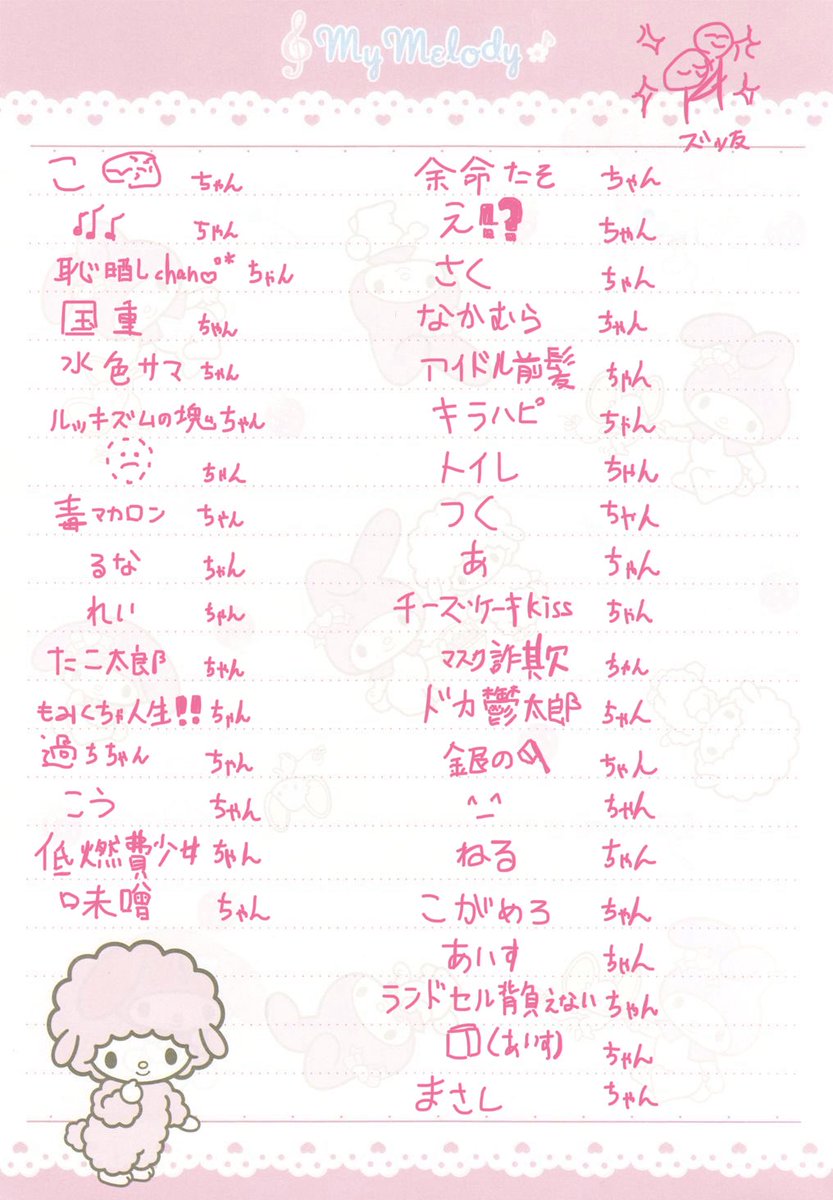 My Melody
ズッ友
こ ちゃん
♫♪♪ ちゃん
恥晒しchan♡°* ちゃん
国重 ちゃん
水色サマ ちゃん
ルッキズムの塊 ちゃん
ちゃん
毒マカロン ちゃん
るな ちゃん
れい ちゃん
たこ太郎 ちゃん
もみくちゃ人生!! ちゃん
過ちちゃん ちゃん
こう ちゃん
低燃費少女 ちゃん
口味噌 ちゃん
余命たそ ちゃん
え!? ちゃん
さく ちゃん
なかむら ちゃん
アイドル前髪 ちゃん
キラハピ ちゃん
トイレ ちゃん
つく ちゃん
あ ちゃん
チーズケーキkiss ちゃん
マスク詐欺 ちゃん
ドカ鬱太郎 ちゃん
銀の ちゃん
^_^ ちゃん
ねる ちゃん
こがめろ ちゃん
あいす ちゃん
ランドセル背負えない ちゃん
(あいす) ちゃん
まさし ちゃん